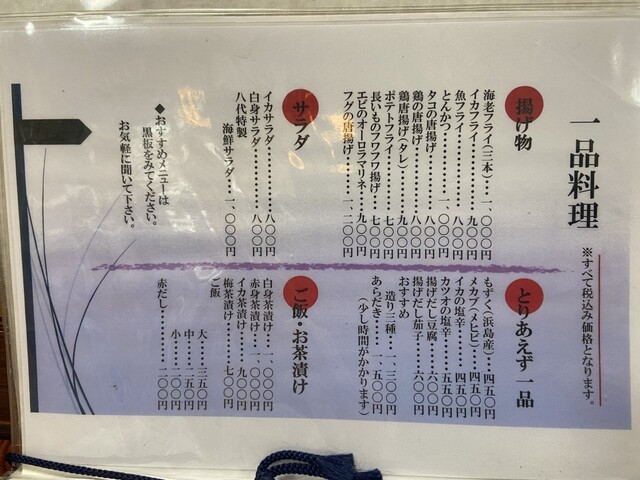 一品料理
※すべて税込み価格となります。
揚げ物
海老フライ(三本)・・一、〇〇〇円
イカフライ・・・・・・・九〇〇円
魚フライ・・・・・・・・八〇〇円
とんかつ・・・・・・一、〇〇〇円
タコの唐揚げ・・・・・・八〇〇円
鶏の唐揚げ・・・・・・・八〇〇円
鶏唐揚げ(タレ)・・・・九〇〇円
ポテトフライ・・・・・・七〇〇円
長いものフワフワ揚げ・・七〇〇円
エビのオーロラマリネ・・九〇〇円
フグの唐揚げ・・・・一、二〇〇円
サラダ
イカサラダ・・・・・・・八〇〇円
白身サラダ・・・・・・・八〇〇円
八代特製
海鮮サラダ・・・一、〇〇〇円
◆おすすめメニューは
黒板をみてください。
お気軽に聞いて下さい。
とりあえず一品
もずく(浜島産)・・四五〇円
メカブ(メヒビ)・・四五〇円
イカの塩辛・・・・・四五〇円
カツオの塩辛・・・・五五〇円
揚げだし豆腐・・・・六〇〇円
揚げだし茄子・・・・六〇〇円
おすすめ
造り三種・・・一、三〇〇円
あらだき・・・・一、五〇〇円
(少し時間がかかります)
ご飯・お茶漬け
白身茶漬け・・一、〇〇〇円
赤身茶漬け・・一、〇〇〇円
イカ茶漬け・・・・九〇〇円
梅茶漬け・・・・・七〇〇円
ご飯
大・・・・・三五〇円
中・・・・・二五〇円
小・・・・・二〇〇円
赤だし・・・・・・二〇〇円